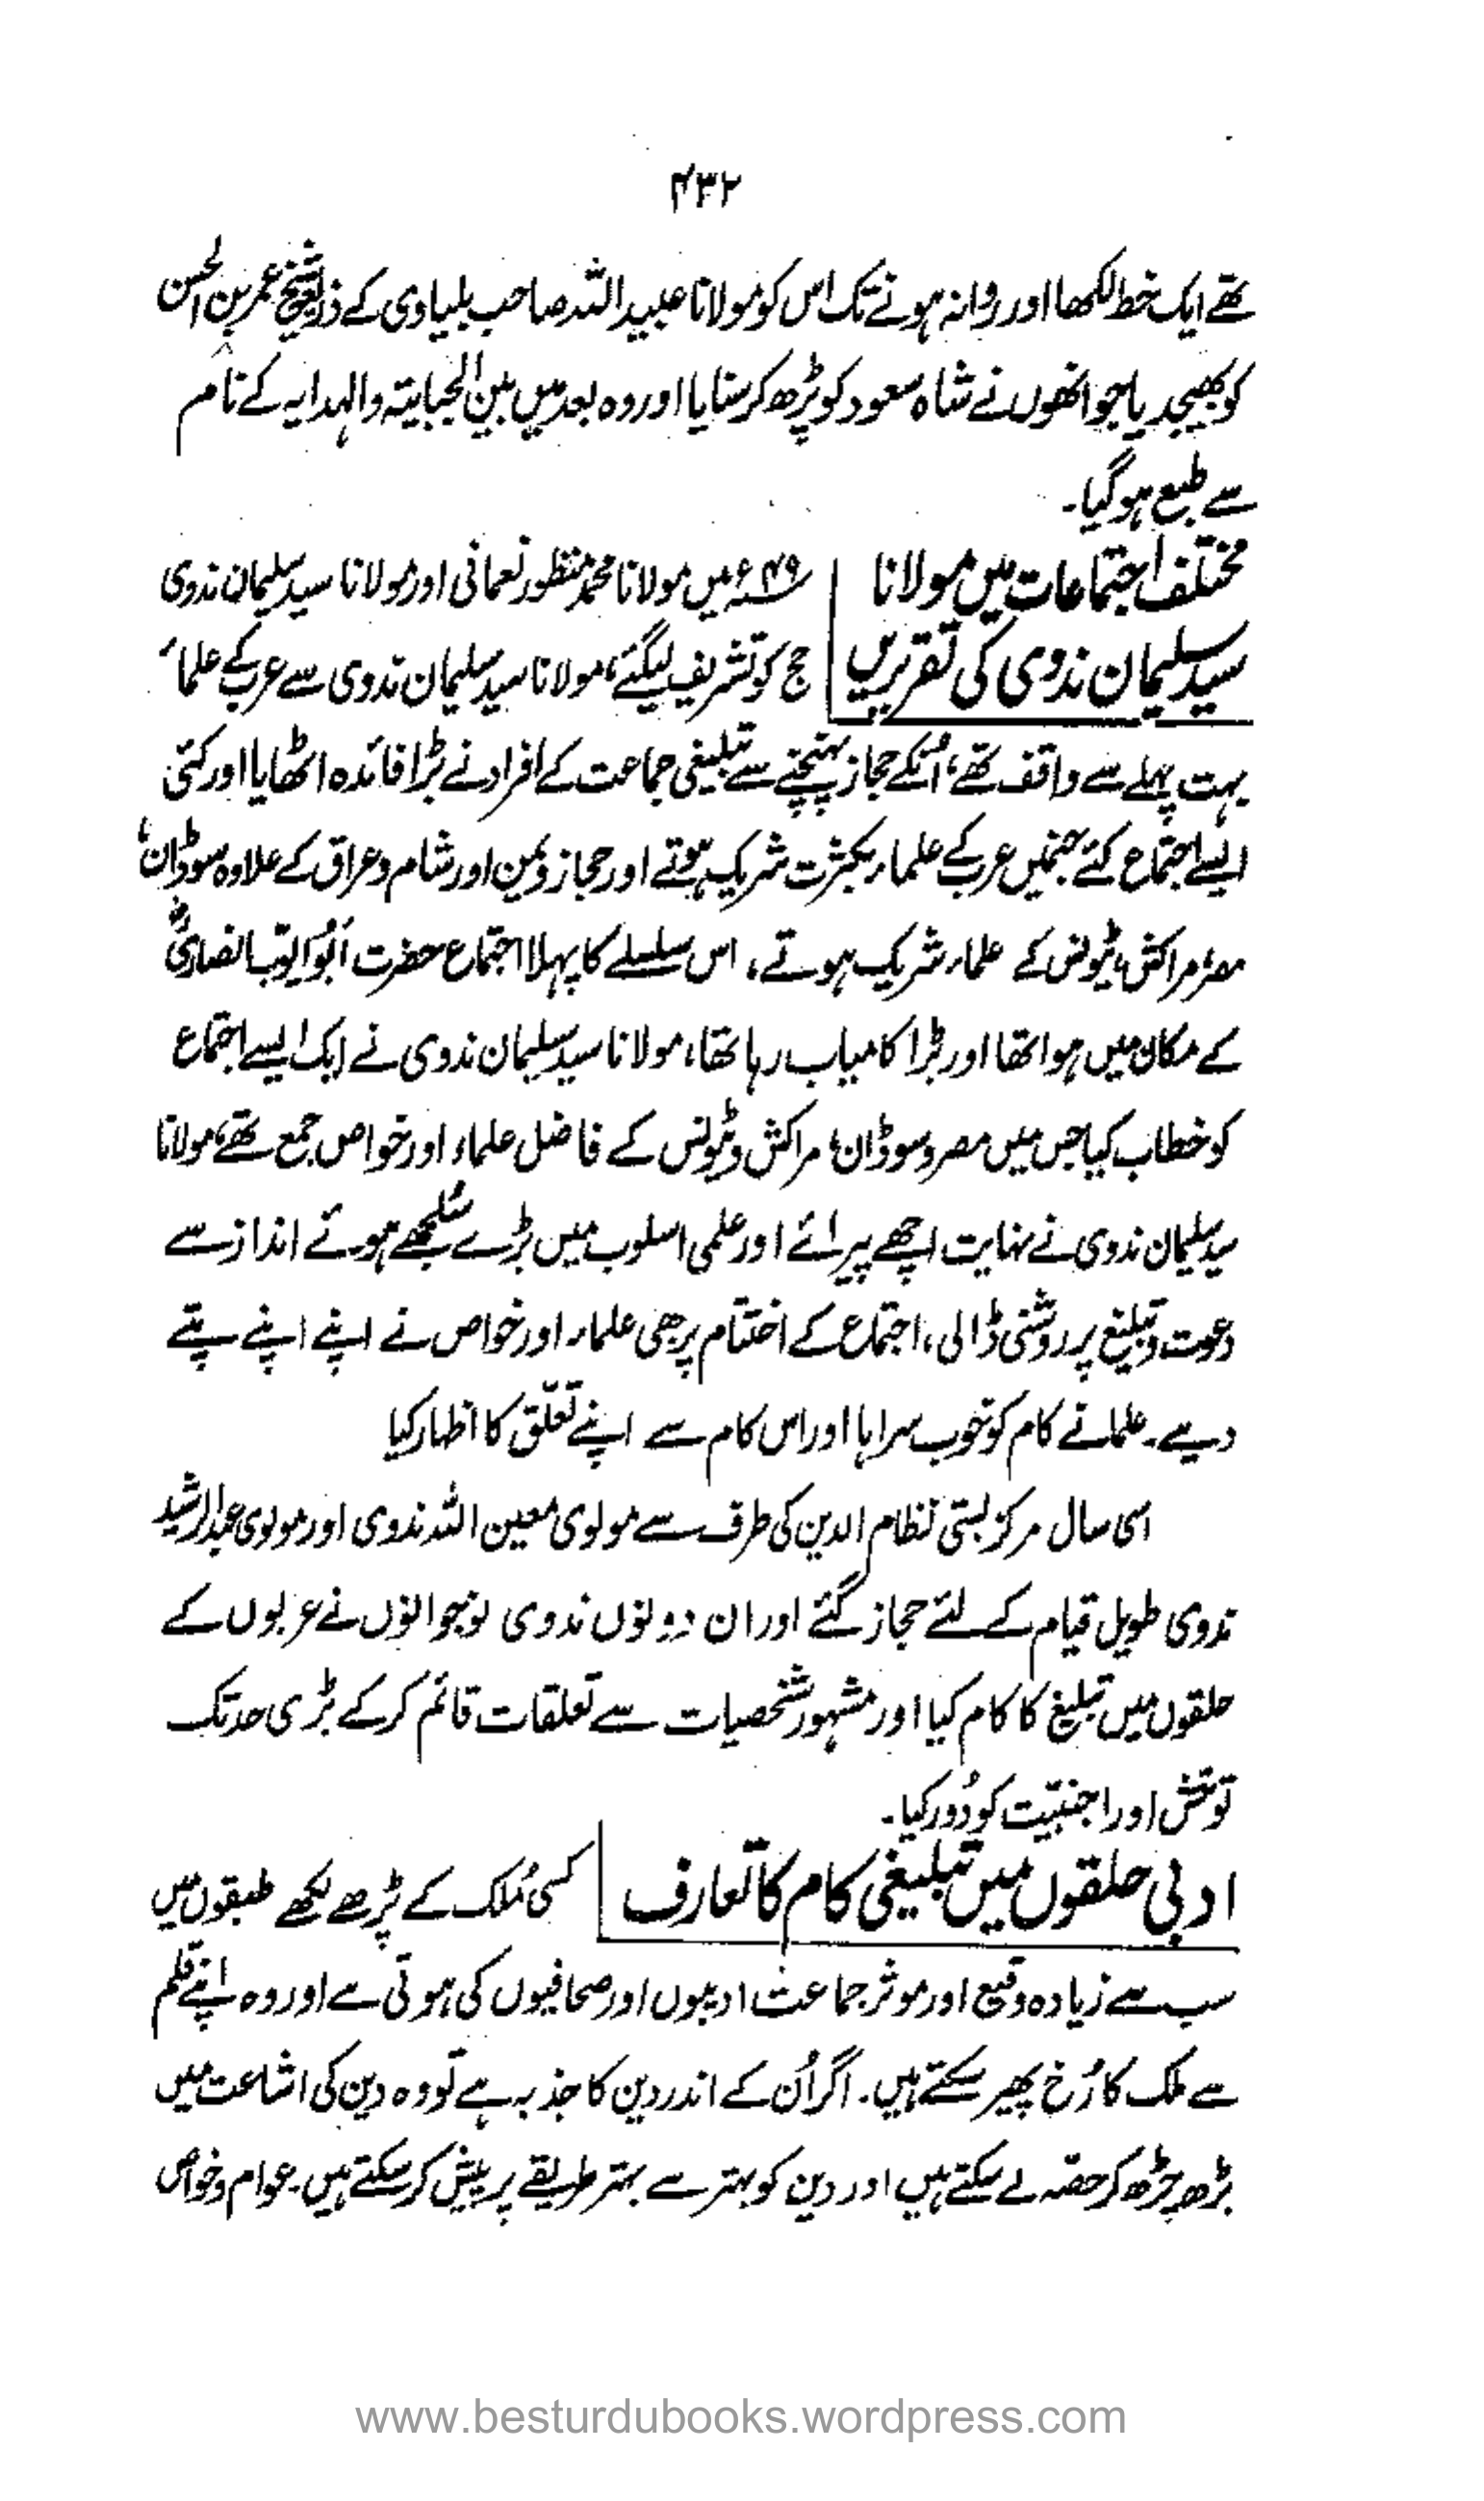 ۴۳۲
تھے ایک خط لکھا اور روانہ ہونے تک اس کو مولانا عبید اللہ صاحب بلیاوی کے ذریعہ شیخ عمر بن الحسن
کو بھیجدیا جو انھوں نے شاہ سعود کو پڑھ کر سنایا اور وہ بعد میں بین الجبایتہ والہدایہ کے نام
سے طبع ہو گیا۔
مختلف اجتماعات میں مولانا
سید سلیمان ندوی کی تقریریں
۴۹ء میں مولانا محمد منظور نعمانی اور مولانا سید سلیمان ندوی
حج کو تشریف لیگئے، مولانا سید سلیمان ندوی سے عرب کے علماء
بہت پہلے سے واقف تھے، اُنکے حجاز پہنچنے سے تبلیغی جماعت کے افراد نے بڑا فائدہ اٹھایا اور کئی
ایسے اجتماع کئے جنمیں عرب کے علماء بکثرت شریک ہوتے اور حجاز و یمن اور شام و عراق کے علاوہ سوڈان،
مصر، مراکش، ٹیونس کے علماء شریک ہوتے، اس سلسلے کا پہلا اجتماع حضرت ابو ایوب انصاریؓ
کے مکان میں ہوا تھا اور بڑا کامیاب رہا تھا، مولانا سید سلیمان ندوی نے ایک ایسے اجتماع
کو خطاب کیا جس میں مصر و سوڈان، مراکش و ٹیونس کے فاضل علماء اور خواص جمع تھے، مولانا
سید سلیمان ندوی نے نہایت اچھے پیرائے اور علمی اسلوب میں بڑے سُلجھے ہوئے انداز سے
دعوت و تبلیغ پر روشنی ڈالی، اجتماع کے اختتام پر جمی علماء اور خواص نے اپنے اپنے پتے
دیے۔ علما نے کام کو خوب سراہا اور اس کام سے اپنے تعلّق کا اظہار کیا
اسی سال مرکز بستی نظام الدین کی طرف سے مولوی معین اللہ ندوی اور مولوی عبدالرشید
ندوی طویل قیام کے لئے حجاز گئے اور ان دونوں ندوی نوجوانوں نے عربوں کے
حلقوں میں تبلیغ کا کام کیا اور مشہور شخصیات سے تعلقات قائم کر کے بڑی حد تک
توحش اور اجنبیّت کو دُور کیا۔
ادبی حلقوں میں تبلیغی کام کا تعارف
کسی مُلک کے پڑھے لکھے طبقوں میں
سب سے زیادہ وقیع اور موثر جماعت ادیبوں اور صحافیوں کی ہوتی ہے اور وہ اپنے قلم
سے ملک کا رُخ پھیر سکتے ہیں۔ اگر اُن کے اندر دین کا جذبہ ہے تو وہ دین کی اشاعت میں
بڑھ چڑھ کر حصّہ لے سکتے ہیں اور دین کو بہتر سے بہتر طریقے پر پیش کر سکتے ہیں۔ عوام و خواص
www.besturdubooks.wordpress.com